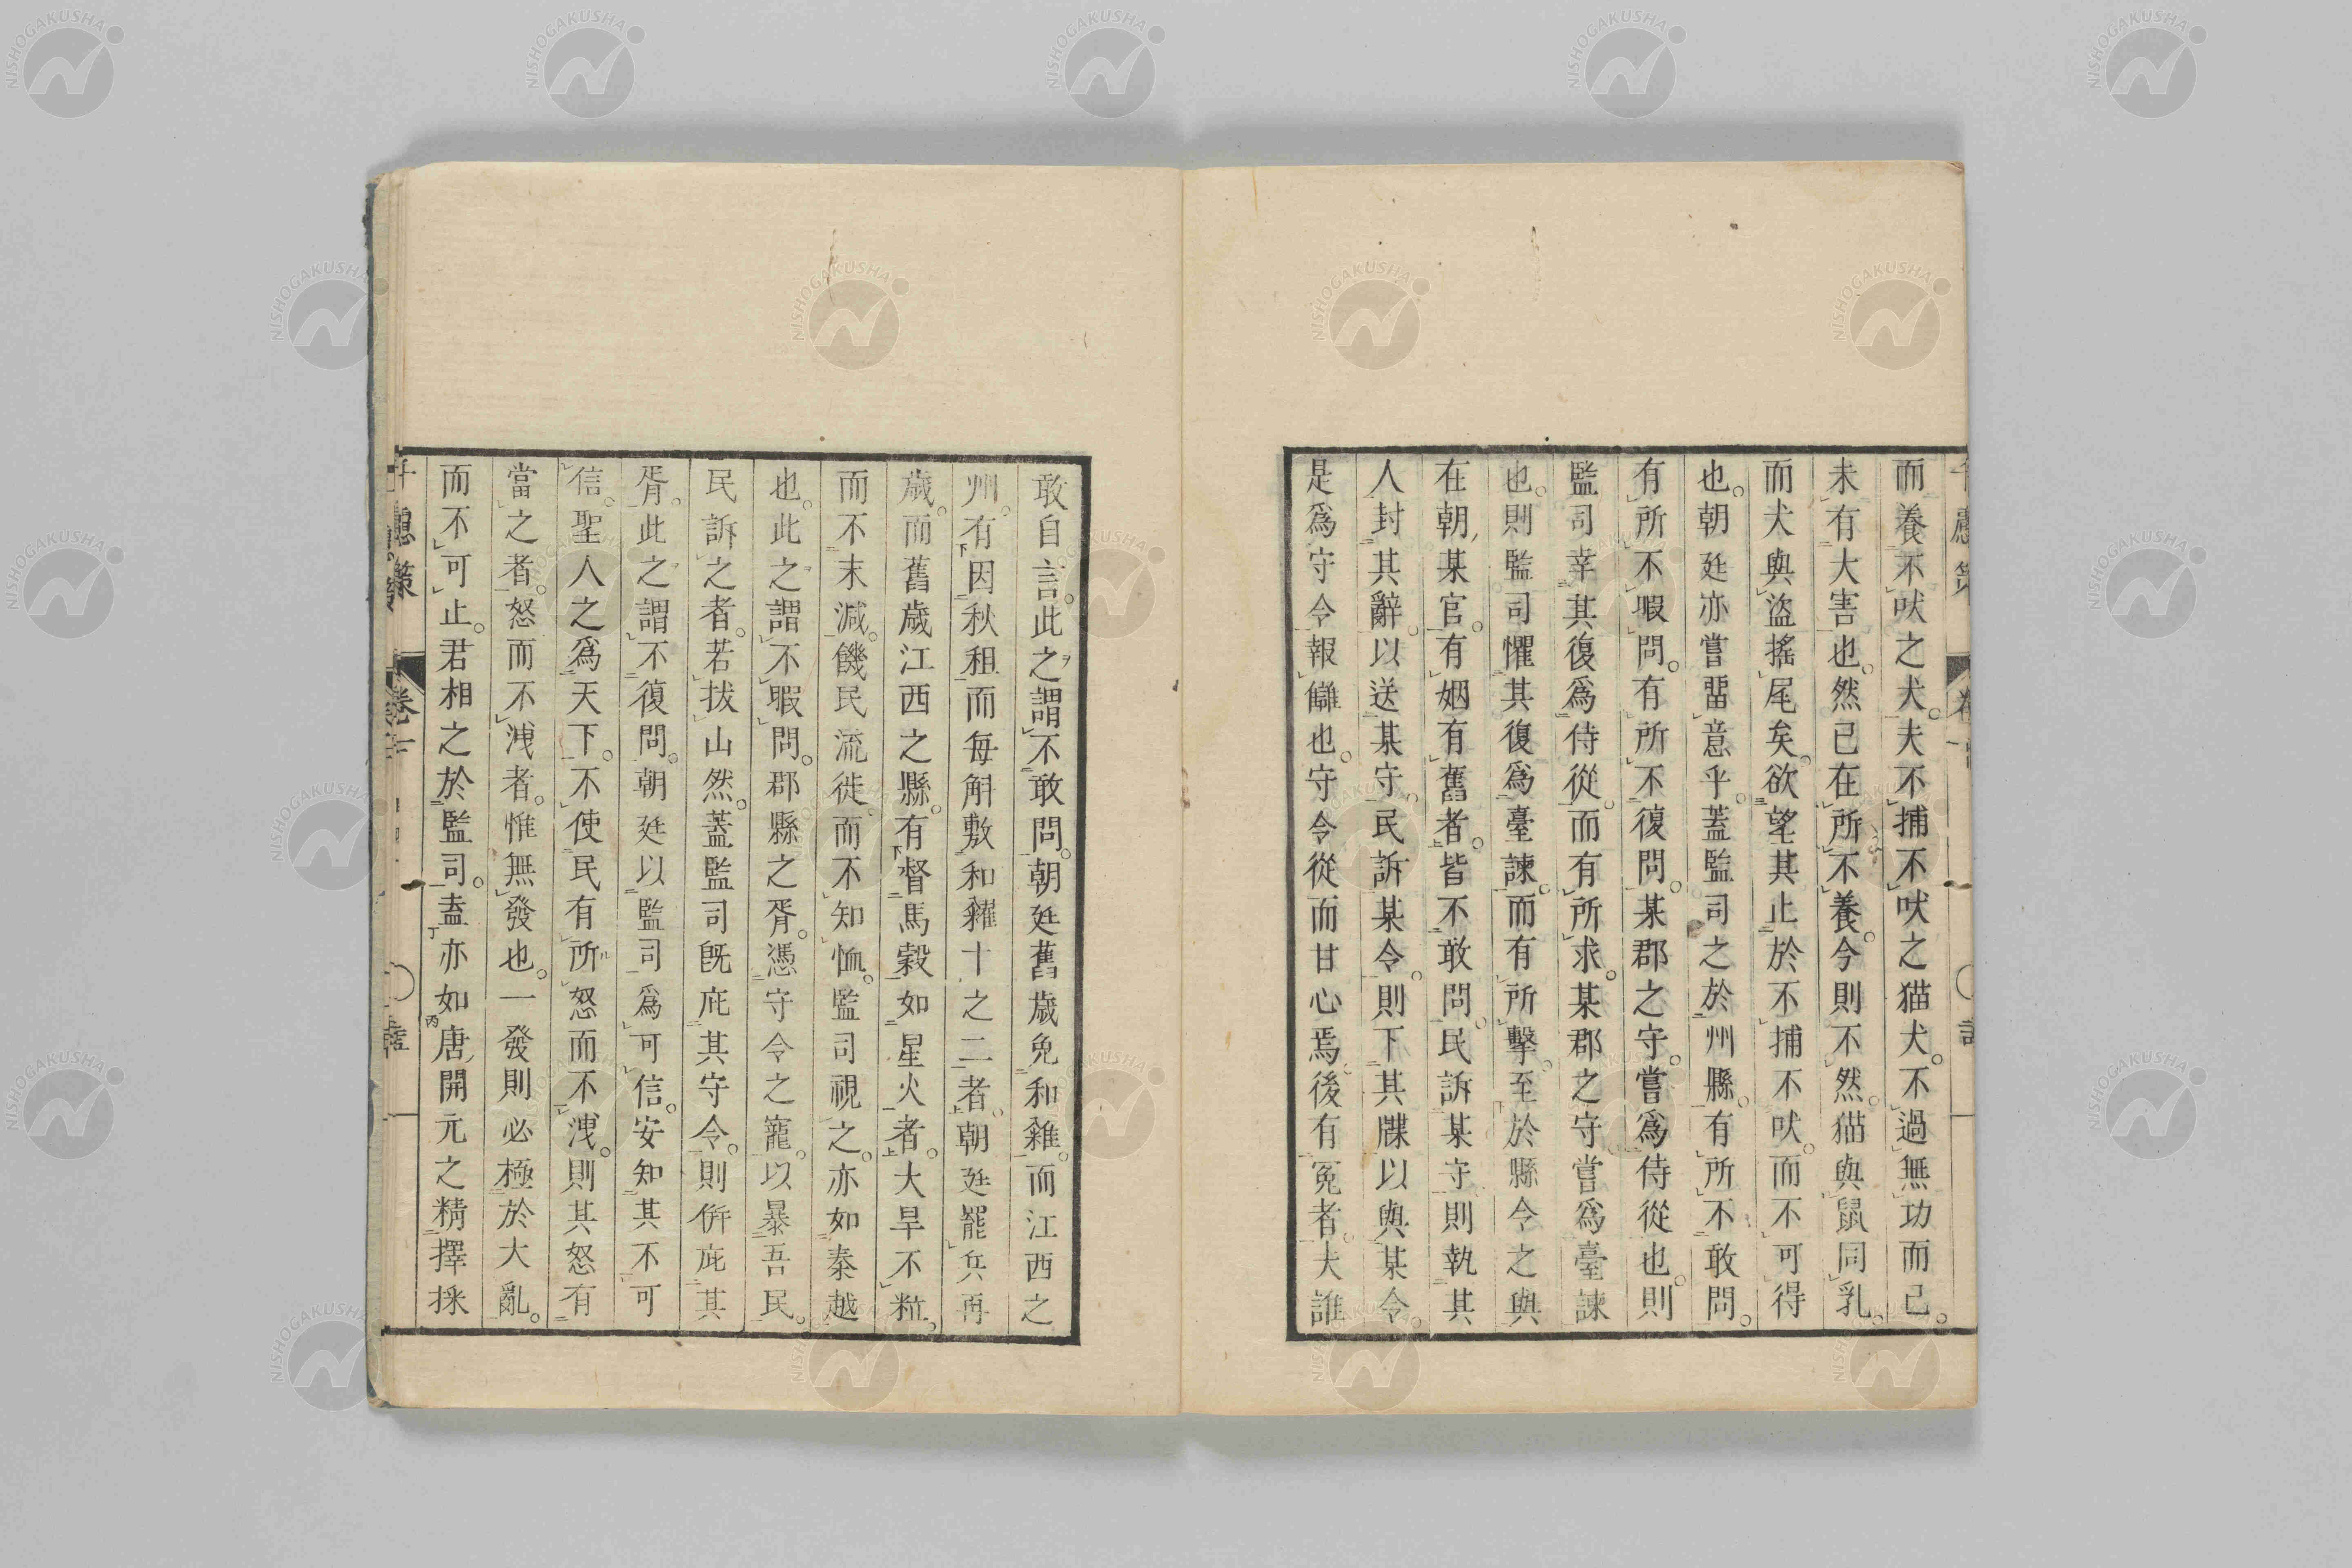 而養不吠之犬。夫不捕不吠之猫犬。不過無功而已。
未有大害也。然已在所不養。今則不然。猫與鼠同乳。
而犬與盜搖尾矣。欲望其止於不捕不吠。而不可得
也。朝廷亦嘗畱意乎。蓋監司之於州縣。有所不敢問。
有所不暇問。有所不復問。某郡之守。嘗爲侍從也。則
監司幸其復爲侍從。而有所求。某郡之守嘗爲臺諫
也。則監司懼其復爲臺諫。而有所擊。至於縣令之與
在朝某官。有姻有舊者。皆不敢問。民訴某守則執其
人封其辭。以送某守。民訴某令。則下其牒以與某令。
是爲守令報讎也。守令從而甘心焉。後有冤者。夫誰
敢自言。此之謂不敢問。朝廷舊歲免和糴。而江西之
州。有因秋租而每斛敷和糴十之二者。朝廷罷兵再
歲。而舊歲江西之縣。有督馬穀如星火者。大旱不粒。
而不末減。饑民流徙。而不知恤。監司視之。亦如秦越
也。此之謂不暇問。郡縣之胥。憑守令之寵。以暴吾民。
民訴之者。若拔山然。蓋監司既庇其守令。則併庇其
胥。此之謂不復問。朝廷以監司爲可信。安知其不可
信。聖人之爲天下。不使民有所怒而不洩。則其怒有
當之者。怒而不洩者。惟無發也。一發則必極於大亂。
而不可止。君相之於監司。盍亦如唐開元之精擇採
千慮策 卷一